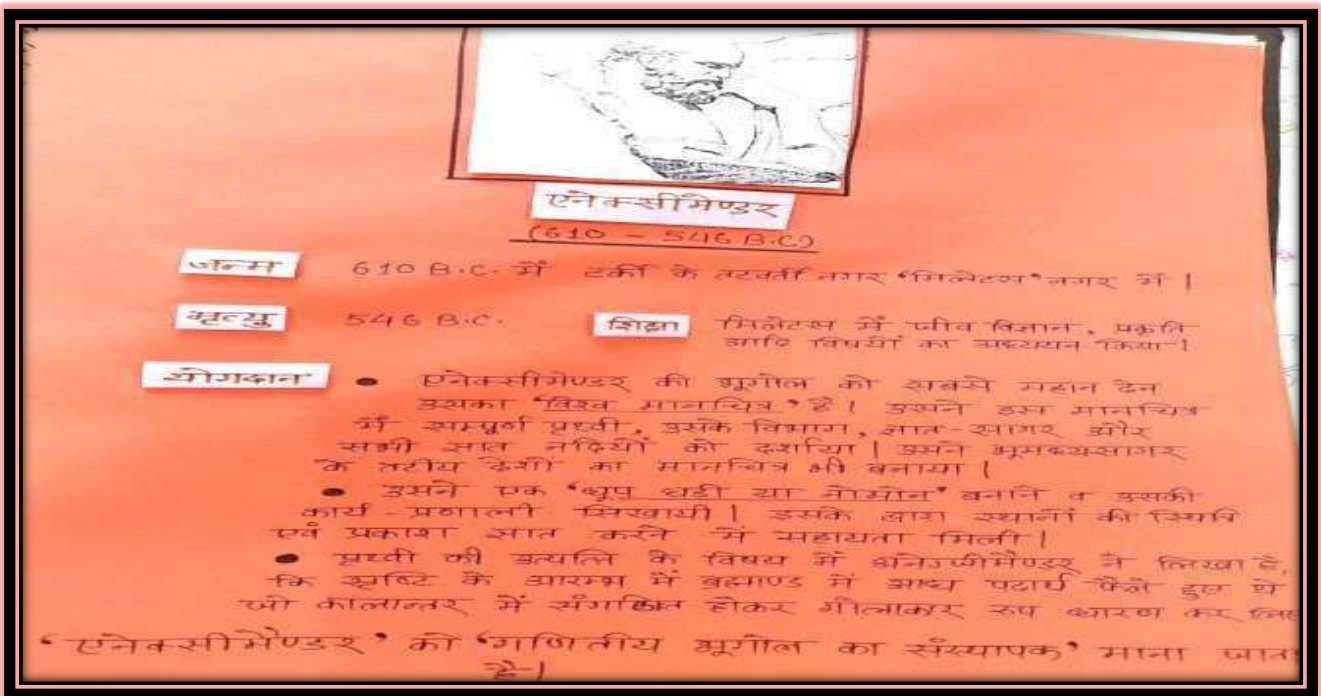 एनेक्सीमेण्डर
(610 - 546 B.C)
जन्म 610 B.C. में टर्की के तटवर्ती नगर 'मिलेटस' नगर में।
मृत्यु 546 B.C. शिक्षा मिलेटस में जीव विज्ञान, प्रकृति
आदि विषयों का अध्ययन किया।
योगदान • एनेक्सीमेण्डर की भूगोल को सबसे महान देन
उसका 'विश्व मानचित्र' है। उसने इस मानचित्र
में सम्पूर्ण पृथ्वी, उसके विभाग, ज्ञात-सागर और
सभी ज्ञात नदियों को दर्शाया। उसने भूमध्यसागर
के तटीय देशों का मानचित्र भी बनाया।
• उसने एक 'धूप घडी या नोमोन' बनाने व उसकी
कार्य-प्रणाली सिखायी। इसके द्वारा स्थानों की स्थिति
एवं प्रकाश ज्ञात करने में सहायता मिली।
• पृथ्वी की उत्पत्ति के विषय में ने लिखा है,
कि सृष्टि के आरम्भ में ब्रह्माण्ड में पदार्थ फैले हुए थे
जो कालान्तर में संगठित होकर गोलाकार रूप धारण कर
'एनेक्सीमैण्डर' को 'गणितीय भूगोल का संस्थापक' माना जाता
है।